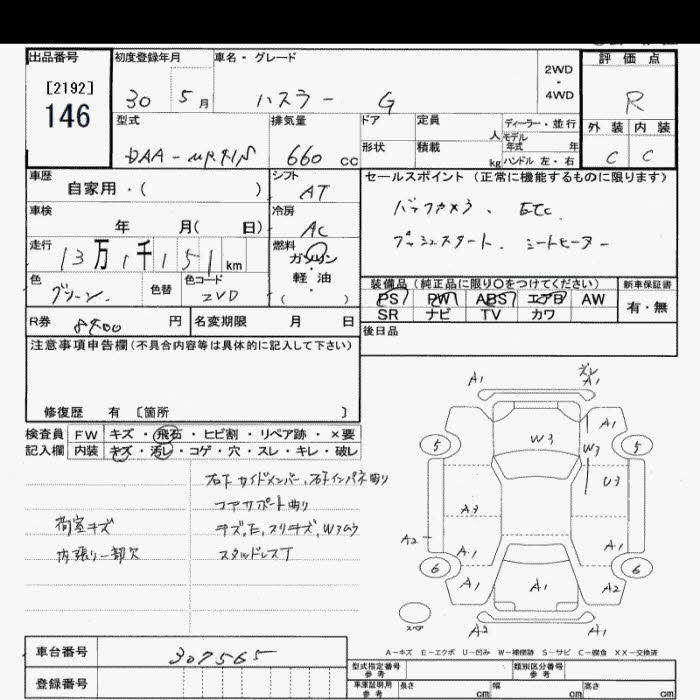 出品番号 初度登録年月 車名・グレード 2WD・4WD 評価点
[2192]
146
30 5月 ハスラー G R
型式 排気量 ドア 定員 人 ディーラー・並行 外装 内装
モデル年式 年
DAA- 660 cc 形状 積載 kg ハンドル 左・右 C C
車歴 シフト セールスポイント (正常に機能するものに限ります)
自家用・( ) AT
車検 冷房 バックカメラ、 ETC
年 月( 日) AC プッシュスタート、 シートヒーター
走行 燃料
13万1千151km ガソリン・軽油
( )
色 色替 色コード 装備品 (純正品に限り○をつけてください) 新車保証書
グリーン ZVD PS PW ABS エアB AW 有・無
SR ナビ TV カワ
R券 8900 円 名変期限 月 日 後日品
注意事項申告欄(不具合内容等は具体的に記入して下さい)
修復歴 有 〔箇所 〕
検査員 FW キズ・飛石・ヒビ割・リペア跡・×要
記入欄 内装 キズ・汚レ・コゲ・穴・スレ・キレ・破レ
右下サイドメンバー、右下インパネ曲り
コアサポート曲り
荷室キズ
内張り一部欠 スタッドレスT
A1 A1
W3 A1
5 W3 5
U3
A3
A2 A1 A1
6 6
A1 A1 A2
スペア
A2 A1
A-キズ E-エクボ U-凹み W-補修跡 S-サビ C-腐食 XX-交換済
車台番号 307565
型式指定番号 参考 類別区分番号 参考
登録番号 車庫証明用 参考 長さ cm 幅 cm 高さ cm